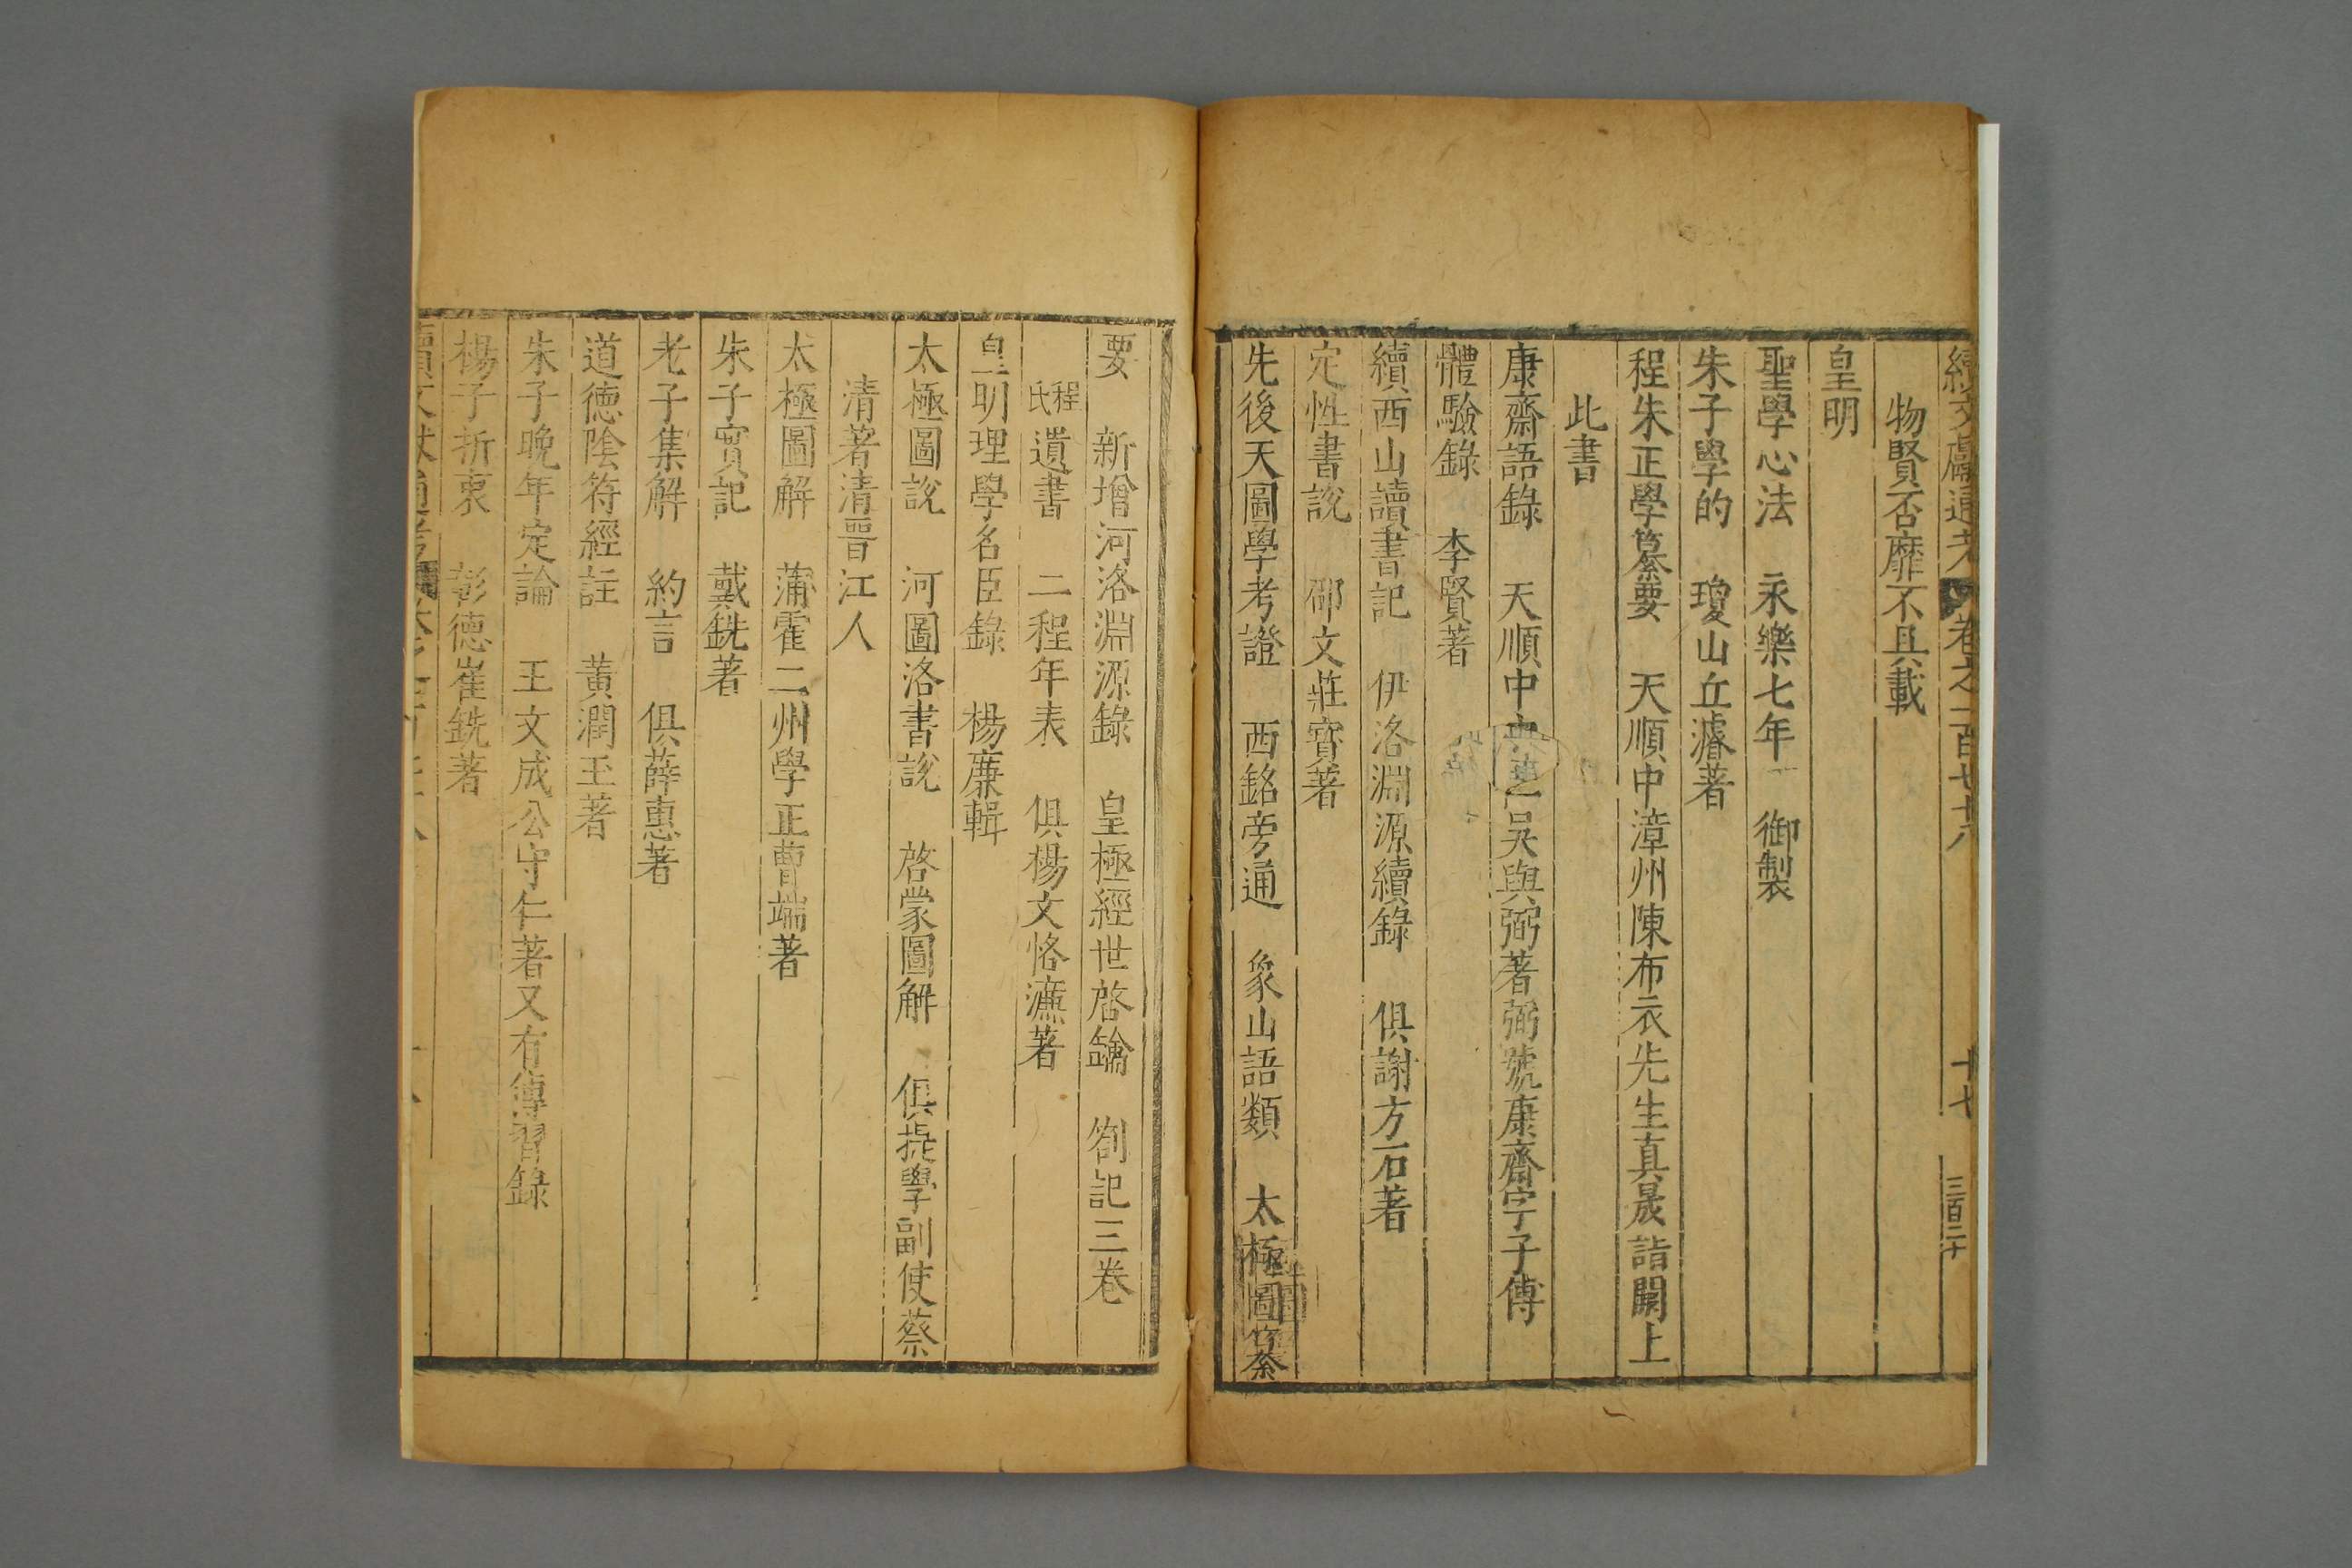 續文獻通考 卷之一百七十八 十七 三百二十
物賢否靡不具載
皇明
聖學心法 永樂七年 御製
朱子學的 瓊山丘濬著
程朱正學纂要 天順中漳州陳布衣先生真晟詣闕上
此書
康齋語錄 天順中 吳與弼著弼號康齋字子傅
體驗錄 李賢著
續西山讀書記 伊洛淵源續錄 俱謝方石著
定性書說 邵文莊寶著
先後天圖學考證 西銘旁通 象山語類 太極圖纂
要 新增河洛淵源錄 皇極經世啓鑰 劄記三卷
程氏遺書 二程年表 俱楊文恪濂著
皇明理學名臣錄 楊廉輯
太極圖說 河圖洛書說 啓蒙圖解 俱提學副使蔡
清著清晋江人
太極圖解 蒲霍二州學正曹端著
朱子實記 戴銑著
老子集解 約言 俱薛蕙著
道德陰符經註 黃潤玉著
朱子晚年定論 王文成公守仁著又有傳習錄
楊子折衷 彰德崔銑著